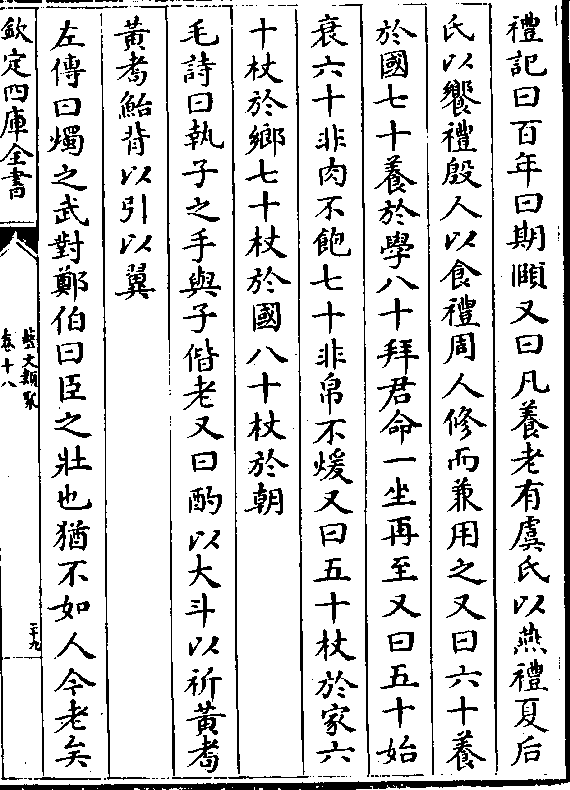 禮記曰百年曰期頤又曰凡養老有虞氏以燕禮夏后
氏以饗禮殷人以食禮周人修而兼用之又曰六十養
於國七十養於學八十拜君命一坐再至又曰五十始
衰六十非肉不飽七十非帛不煖又曰五十杖於家六
十杖於鄉七十杖於國八十杖於朝
毛詩曰執子之手與子偕老又曰酌以大斗以祈黃耇
黃耇鮐背以引以翼
左傳曰燭之武對鄭伯曰臣之壯也猶不如人今老矣
欽定四庫全書
藝文類聚
卷十八
二十九